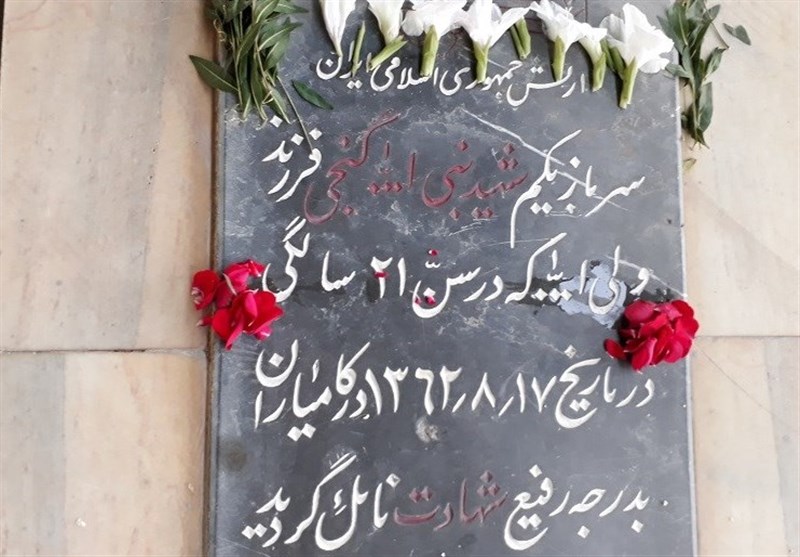 ارتش جمهوری اسلامی ایران
سرباز یکم شهید نبی اله گنجی فرزند
ولی اله که در سن ۲۱ سالگی
در تاریخ ۱۳۶۲٫۸٫۱۷ در کامیاران
بدرجه رفیع شهادت نائل گردید